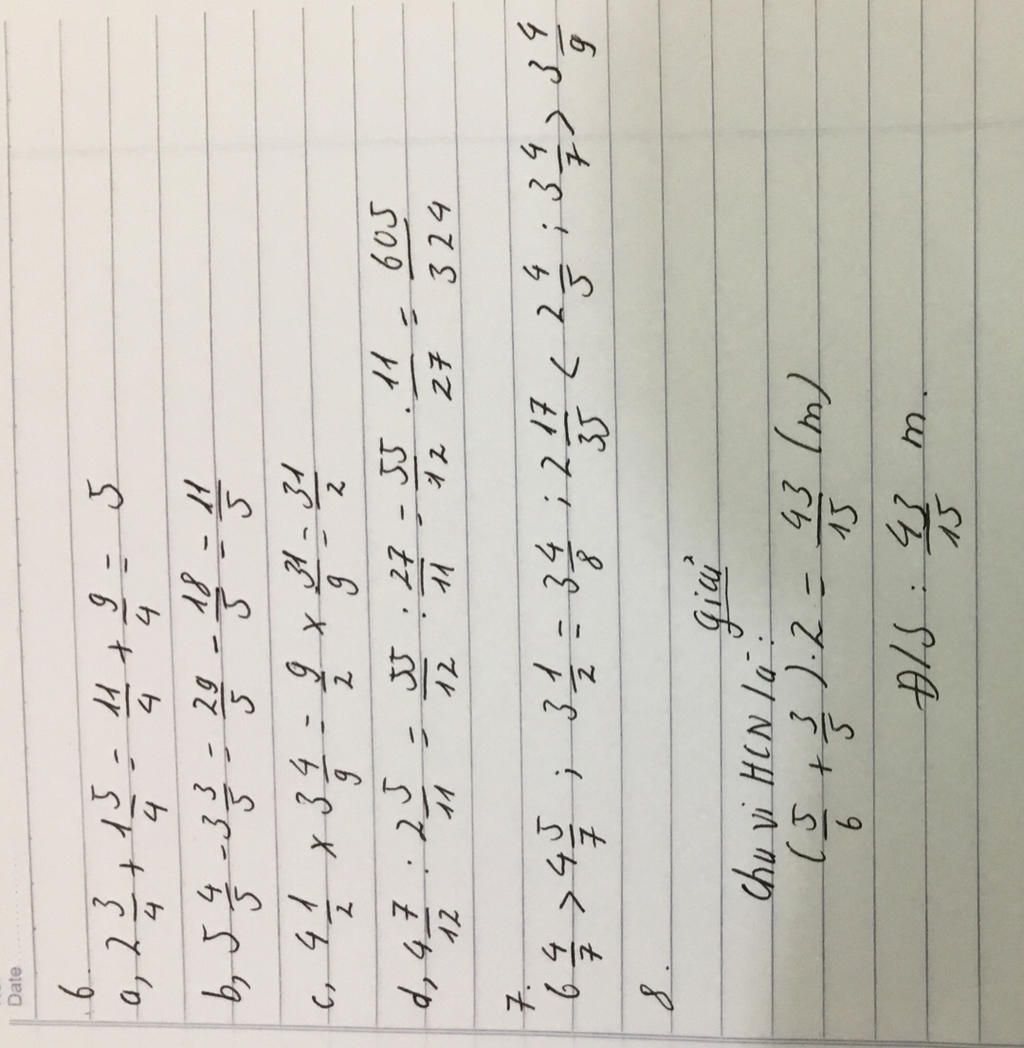 Date
6.
a, 2 3/4 + 1 5/4 = 11/4 + 9/4 = 5
b, 5 4/5 - 3 3/5 = 29/5 - 18/5 = 11/5
c, 4 1/2 x 3 4/9 = 9/2 x 31/9 = 31/2
d, 4 7/12 : 2 5/11 = 55/12 : 27/11 = 55/12 . 11/27 = 605/324
7.
6 4/7 > 4 5/7 ; 3 1/2 = 3 4/8 ; 2 17/35 < 2 4/5 ; 3 4/7 > 3 4/9
8.
giải
Chu vi HCN là:
(5/6 + 3/5) . 2 = 43/15 (m)
Đ/S : 43/15 m.